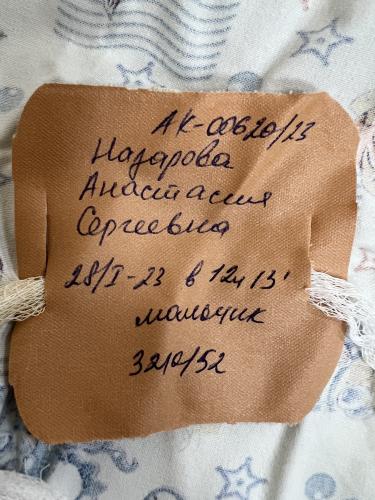 АК-00620/23
Назарова
Анастасия
Сергеевна
28/I-23 в 12ч 13'
мальчик
3210/52